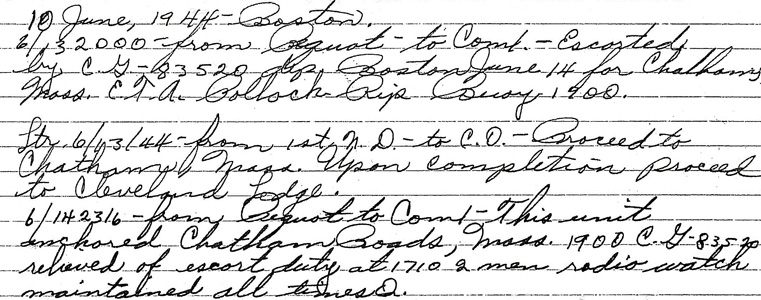 10 June, 1944 - Boston.
6/132000 - from Pequot - to Com1. - Escorted
by C.G-83520 dep. Boston June 14 for Chatham,
Mass. E.T.A. Pollock Rip Buoy 1900.
Ltr. 6/13/44 - from 1st N.D. - to C.O. - Proceed to
Chatham, Mass. Upon completion proceed
to Cleveland Ledge.
6/142316 - from Pequot to Com1 - This unit
anchored Chatham Roads, Mass. 1900 C.G-83520
relieved of escort duty at 1710 2 men radio watch
maintained all times.